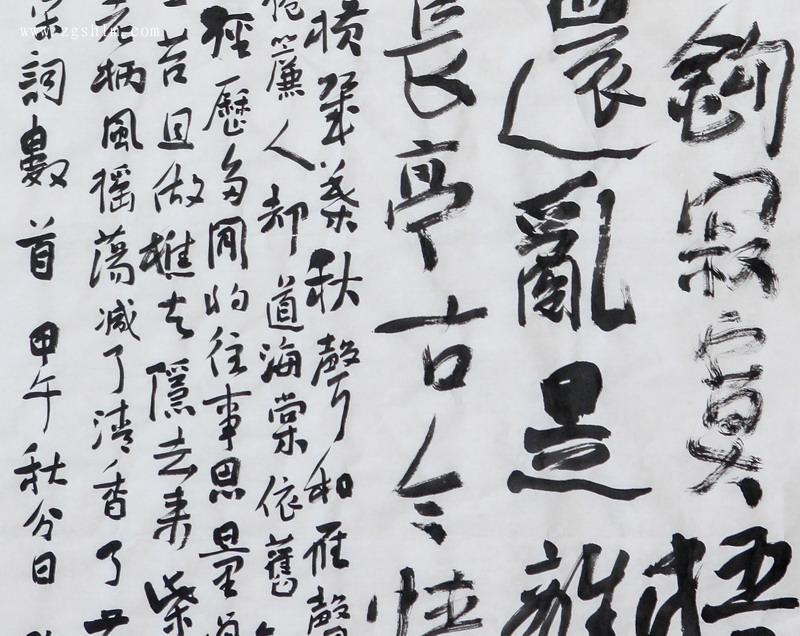 鈎寂寞梧
還亂是離
長亭古今情
橫幾葉秋聲和雁聲
捲簾人却道海棠依舊
歷多閒的往事思量
言且做樵夫隱去來柴
柄風搖蕩減了清香了
宋詞數首 甲午秋分日